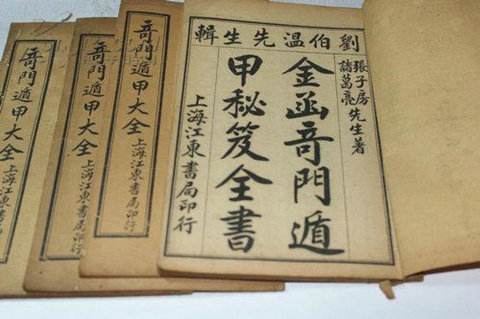 劉伯温先生輯
張子房
諸葛亮
先生著
金函奇門遁
甲秘笈全書
上海江東書局印行
奇門遁甲大全
上海江東書局印行
奇門遁甲大全
上海江東書局印行
奇門遁甲大全
上海江東書局印行